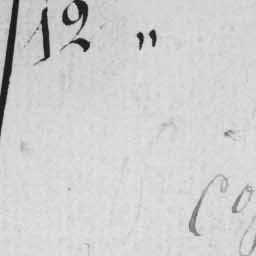 12 "
Co